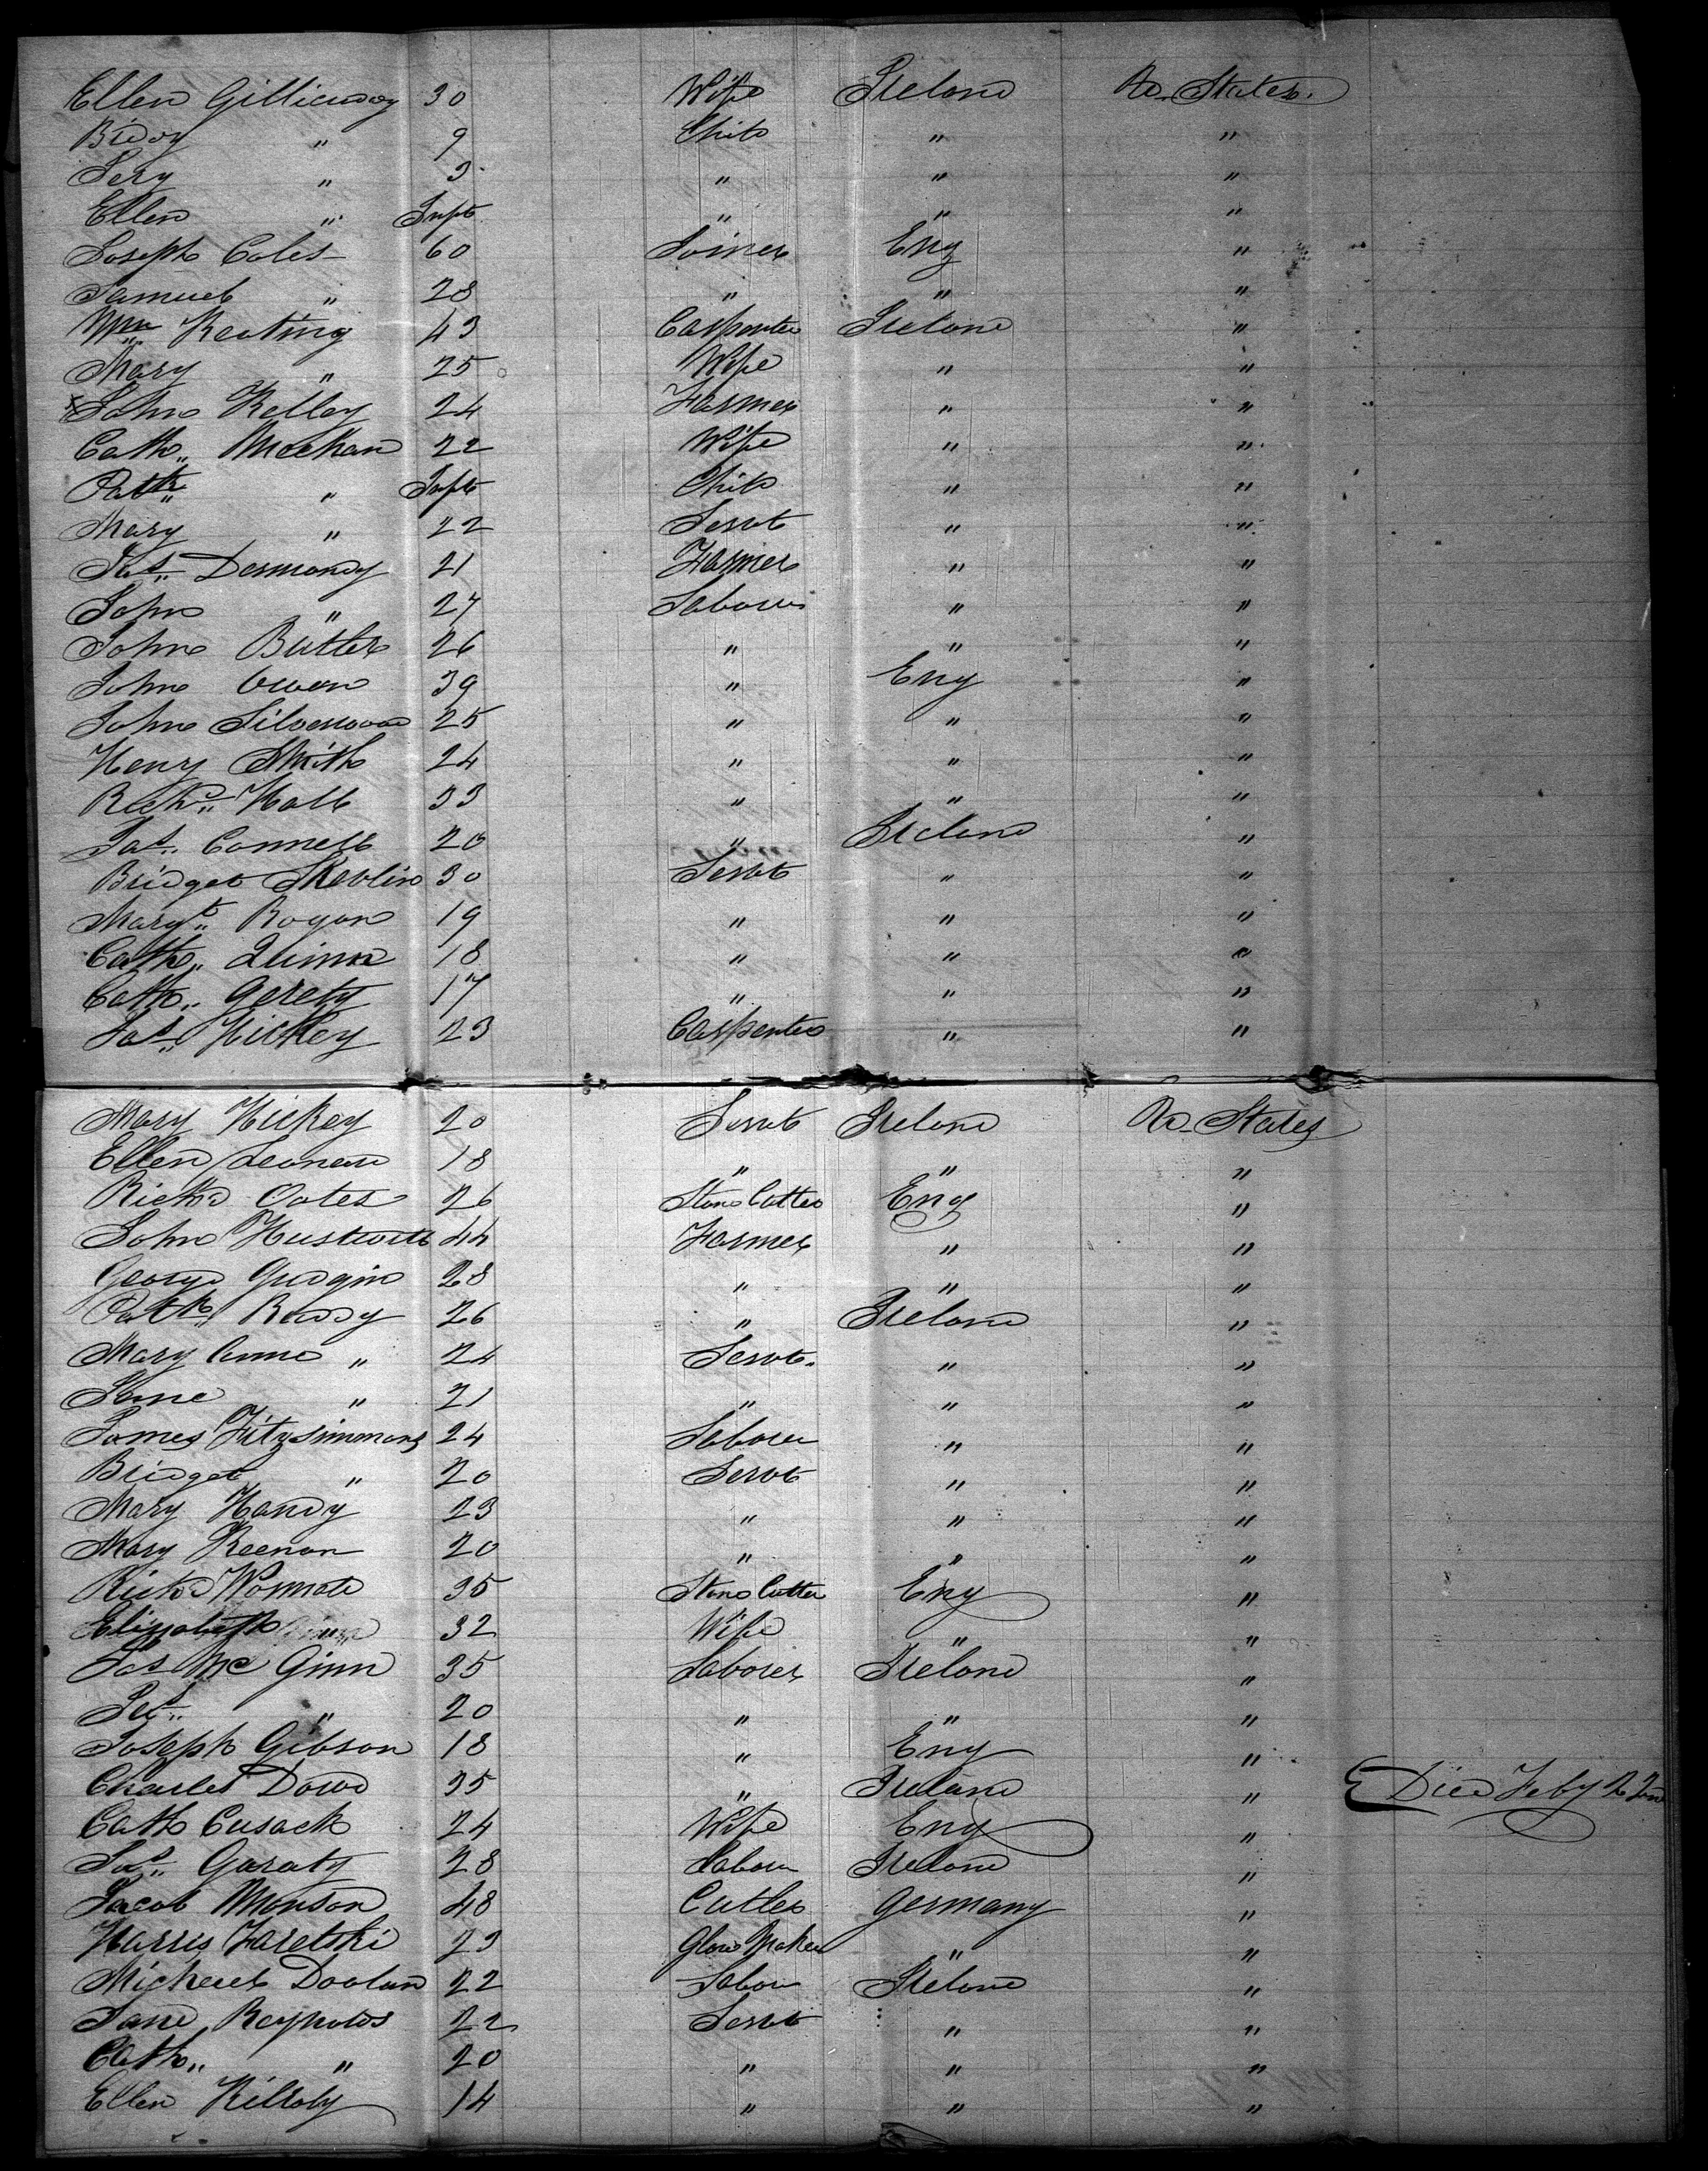 Ellen Gillicuddy 30 Wife Ireland Ud. States.
Biddy " 9 Child " "
Jery " 3 " " "
Ellen " Inft " " "
Joseph Coles 60 Joiner Eng "
Samuel " 28 " " "
Wm Keating 43 Carpenter Ireland "
Mary " 25 Wife " "
x John Kelley 24 Farmer " "
Cath.. Meehan 22 Wife " "
Patk " Inft Child " "
Mary " 22 Servt " "
Jas Desmondy 21 Farmer " "
John " 27 Laborer " "
John Butler 26 " " "
John Owen 39 " Eng "
John Silverwood 25 " " "
Henry Smith 24 " " "
Richd Hall 33 " " "
Jas Connell 20 " Ireland "
Bridget Skevlin 30 Servt " "
Margt Rogan 19 " " "
Cath.. Quinn 18 " " "
Cath.. Gerety 17 " " "
Jas Hickey 23 Carpenter " "
Mary Hickey 20 Servt Ireland Ud. States
Ellen Leonard 18 " " "
Richd Oates 26 Stone Cutter Eng "
John Hustwith 44 Farmer " "
George Gudgin 28 " " "
Patk Reddy 26 " Ireland "
Mary Anne " 24 Servt. " "
Jane " 21 " " "
James Fitzsimmons 24 Laborer " "
Bridget " 20 Servt " "
Mary Handy 23 " " "
Mary Keenan 20 " " "
Richd 35 Stone Cutter Eng "
Elizabeth 32 Wife " "
Jas Mc Ginn 35 Laborer Ireland "
" 20 " " "
Joseph Gibson 18 " Eng "
Charles Dowd 35 " Ireland " Died Feby
Cath Cusack 24 Wife Eng "
Jas Garaty 28 Labour Ireland "
Jacob Monson 48 Cutler Germany "
Harris Zaretski 23 Glove Maker " "
Michael Doolan 22 Labour Ireland "
Jane Reynolds 22 Servt " "
Cath.. " 20 " " "
Ellen Kilroly 14 " " "